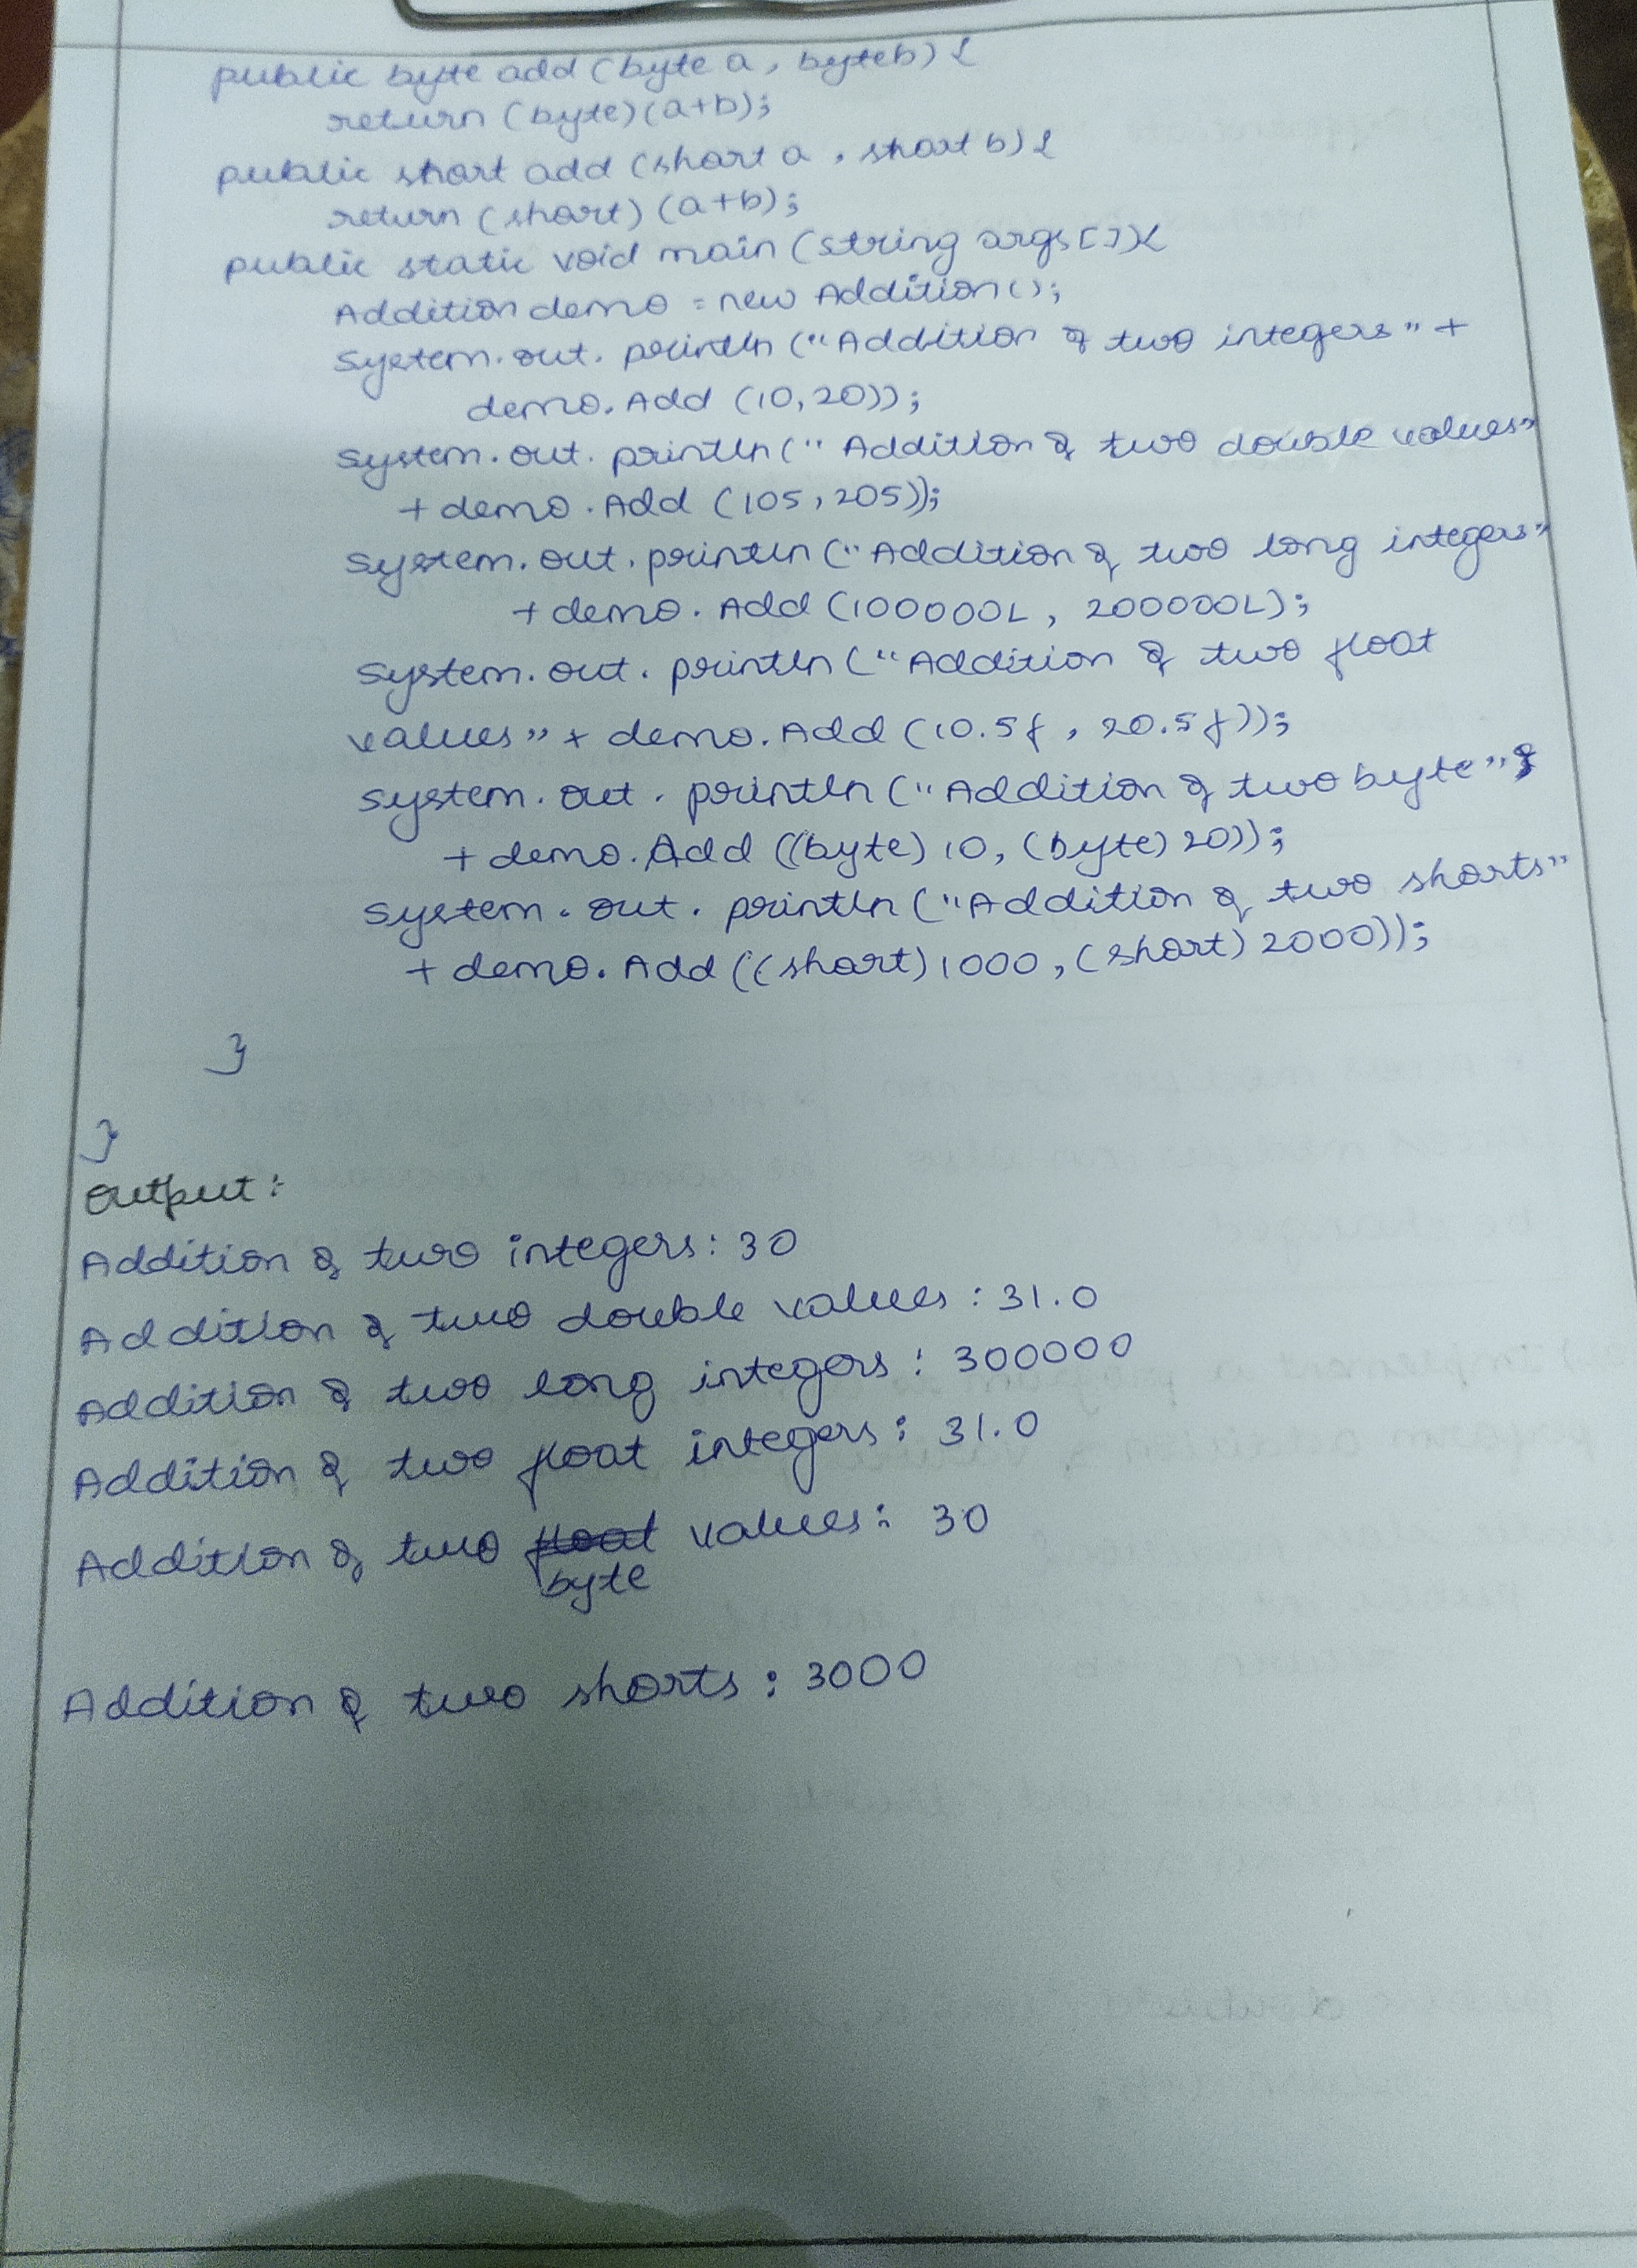 public byte add (byte a, byteb) {
return (byte)(a+b);
public short add (short a, short b) {
return (short) (a+b);
public static void main (string args[]){
Addition demo = new Addition();
System.out.println ("Addition of two integers" +
demo.Add (10,20));
System.out.println (" Addition of two double values"
+ demo.Add (105,205));
System.out.println ("Addition of two long integers"
+ demo.Add (100000L, 200000L);
System.out.println ("Addition of two float
values" + demo.Add (10.5f, 20.5f));
System.out.println ("Addition of two byte"
+ demo.Add ((byte) 10, (byte) 20));
System.out.println ("Addition of two shorts"
+ demo.Add ((short) 1000, (short) 2000));
}
}
Output:
Addition of two integers: 30
Addition of two double values: 31.0
Addition of two long integers: 300000
Addition of two float integers: 31.0
Addition of two float values: 30
byte
Addition of two shorts: 3000